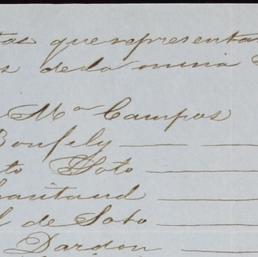 tas que representa
s de la mina
Mª Campos
Bonfely
to Soto
l de Soto
Dardon